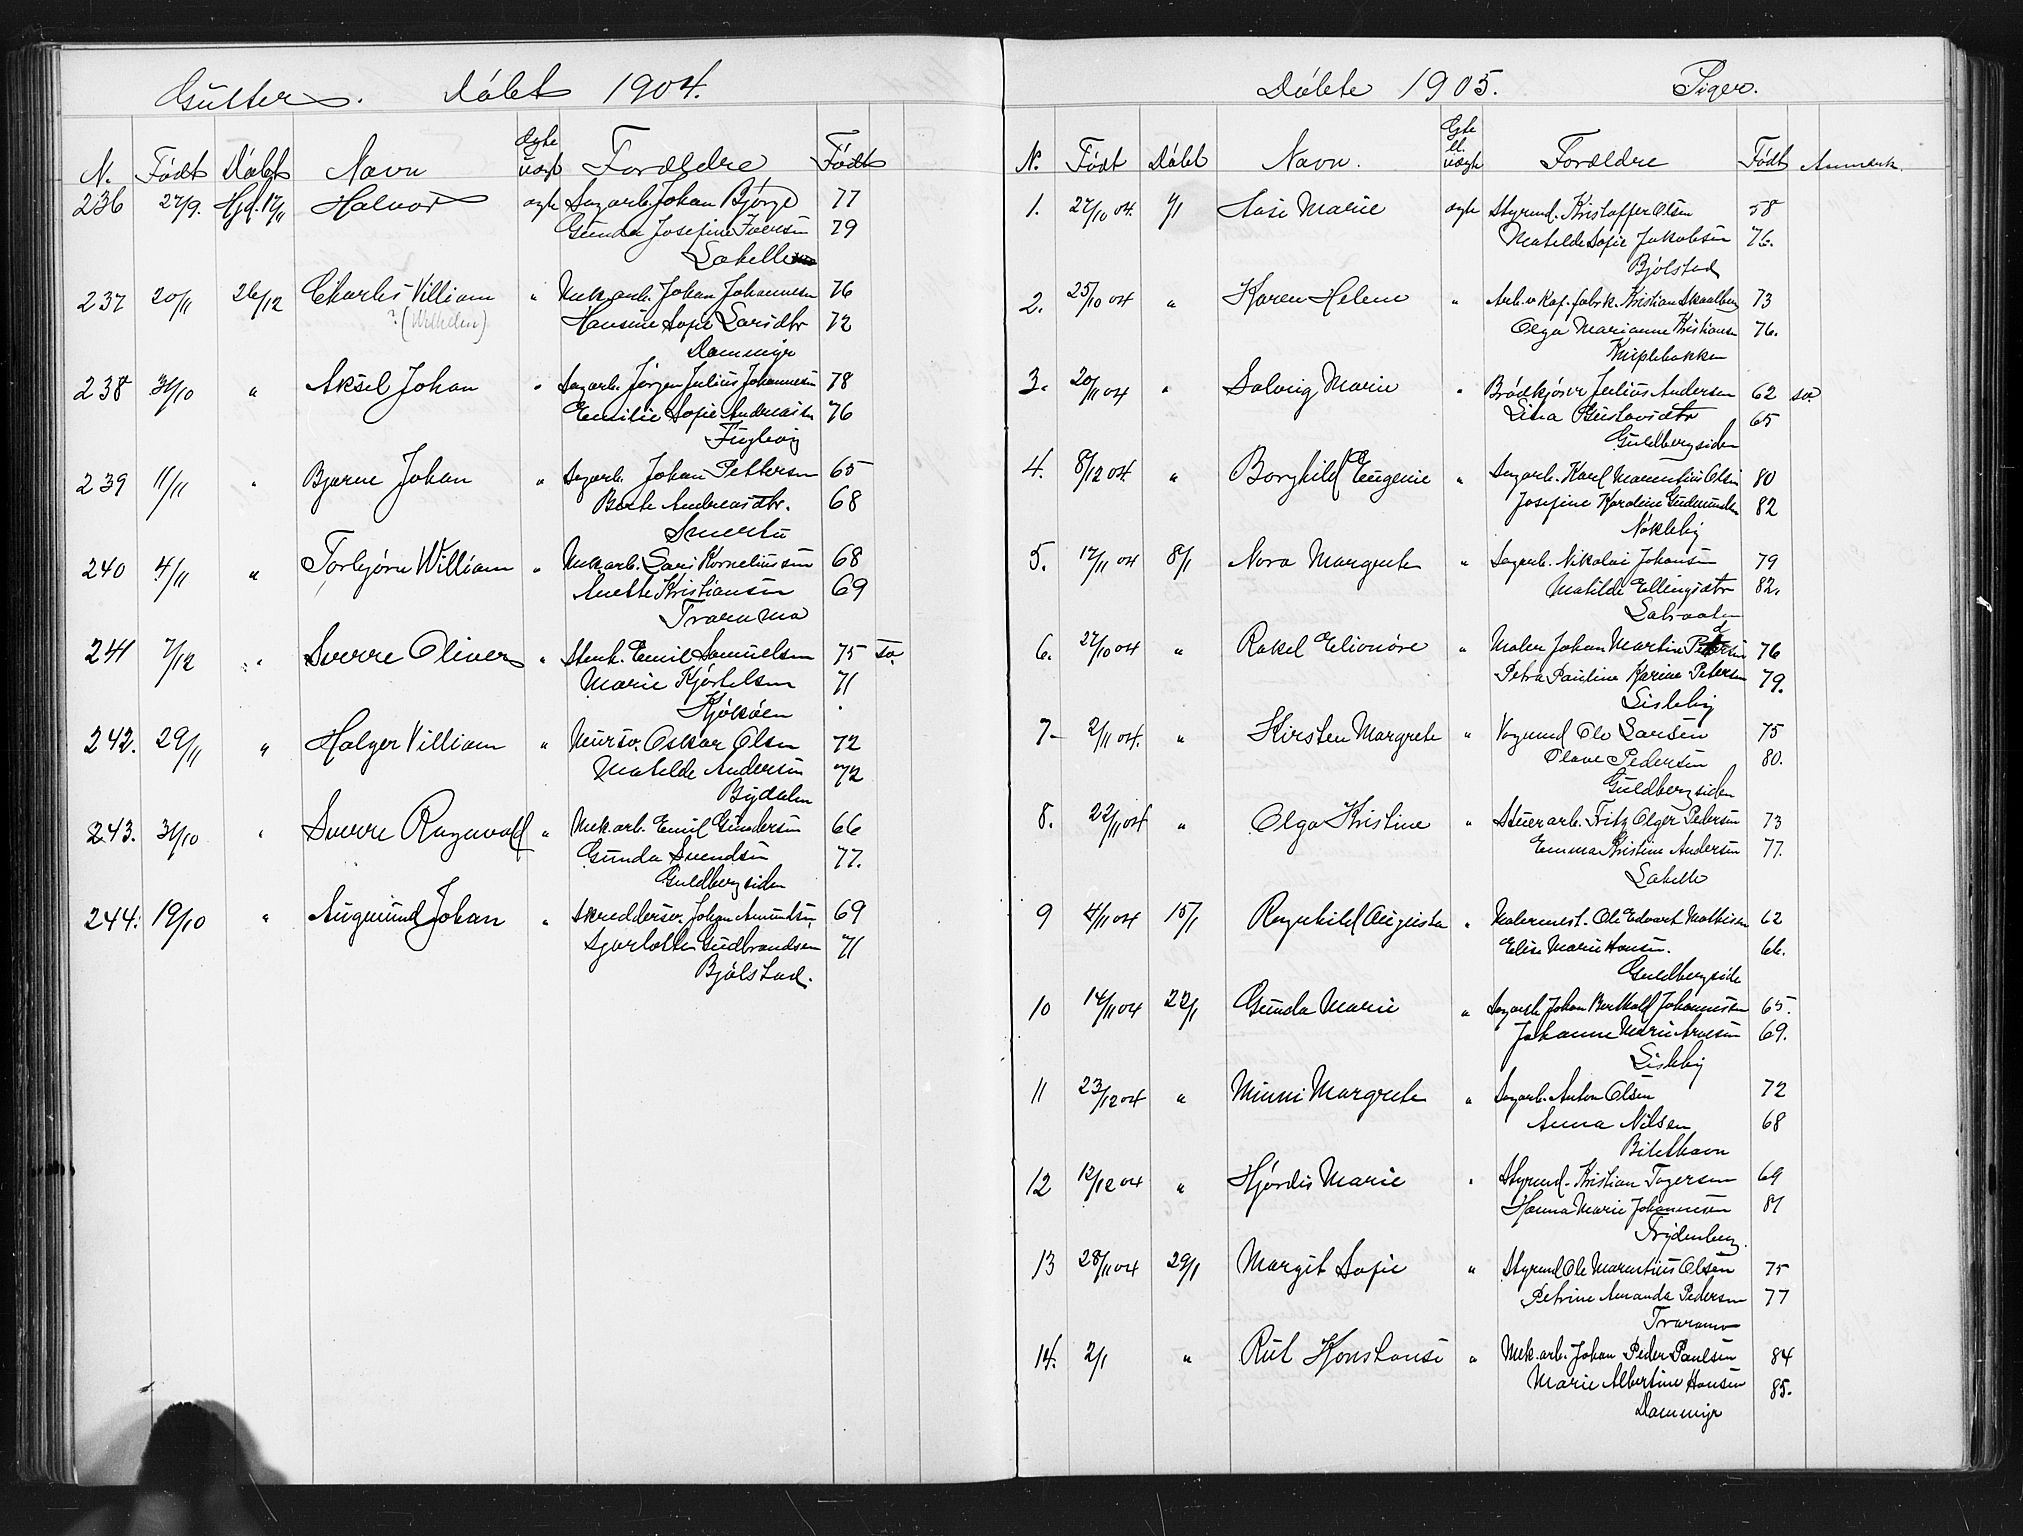 Gutter. Døbt 1904.
N. Født Døbt Navn Ægte uægt Forældre Født
236 27/9. Hjd. 17/11 Halvor ægte Sagarb. Johan Bjørge 77
Gunda Josefine Iversen 79
Lahelle
237 20/11 26/12 Charles Villiam " Mek. arb. Johan Johannesen 76
? (Wilhelm) Hansine Sofie Larsdtr 72
Dammyr
238 31/10 " Aksel Johan " Sagarb. Jørgen Julius Johannesen 78
Emilie Sofie Andreasen 76
Fuglevig
239 11/11 " Bjarne Johan " Sagarb. Johan Pettersen 65
Berte Andreasdtr. 68
Smertu
240 4/11 " Torbjørn William " Mek arb. Lars Korneliussen 68
Anette Kristiansen 69
Traramo
241 7/12 " Sverre Oliver " Stenh. Emil Samuelsen 75 sv.
Marie Kjørtelsen 71
Kjøkøen
242. 29/11 " Holger Villiam " Mursv. Oskar Olsen 72
Matilde Andersen 72
Bydalen
243. 31/10 " Sverre Ragnvald " Mek. arb. Emil Gundersen 66
Gunda Svendsen 77.
Guldbergsiden
244. 19/10 " Augmund Johan " Skreddersv. Johan Amundsen 69
Sjarlotte Gudbrandsen 71
Bjølstad.
Døbte 1905. Piger.
N. Født Døbt Navn. Egte el. uægte Forældre Født Anmerk.
1. 27/10 04. 1/1 Aase Marie ægte Styrmd. Kristoffer Olsen 58
Matilde Sofie Jakobsen 76.
Bjølstad
2. 25/10 04 " Karen Helene " Arb. v Kap. fabrk. Kristian Skaalberg 73
Olga Marianne Kristiansen 76.
Kniplebakken
3. 20/11 04 " Solveig Marie " Brødkjører Julius Andersen 62 sv.
Lina Gustavsdtr 65
Guldbergsiden
4. 8/12 04. " Borghild Eugenie " Sagarb. Karl Marentius Olsen 80
Josefine Karoline Gudmundsen 82
Nøkleby
5. 17/11 04 8/1 Nora Margrete " Sagarb. Nikolai Johansen 79
Matilde Ellingsdtr 82.
Labraaten
6. 27/10 04 " Rakel Elionore " Maler Johan Martin Pedersen 76
Petra Pauline Karine Petersen 79.
Lisleby
7- 2/11 04. " Kirsten Margrete " Vognmd Ole Larsen 75
Olave Pedersen 80.
Guldbergsiden
8. 22/11 04 " Olga Kristine " Stuerarb. Fritz Olger Pedersen 73
Emma Kristine Andersen 77.
Lahelle
9 4/11 04 15/1 Ragnhild Augusta " Malermest. Ole Edvart Mathisen 62
Elise Marie Hansen. 66.
Guldbergside
10 14/11 04 22/1 Gunda Marie " Sagarb Johan Berthold Johannessen 65.
Johanne Marie Arnesen 69.
Lisleby
11 23/12 04 " Minni Margrete " Sagarb. Anton Olsen 72
Anna Nilsen 68
Biletkavn
12 12/12 04 " Hjørdis Marie " Styrmd. Kristian Tagersen 69
Hanna Marie Johannesen 81
Frydenberg.
13 28/11 04 29/1 Margit Sofie " Styrmd Ole Marentius Olsen 75
Petrine Amanda Pedersen 77
Traramo
14. 2/1 " Rut Konstanse " Mek. arb. Johan Peder Paulsen 84
Marie Albertine Hansen 85.
Dammyr